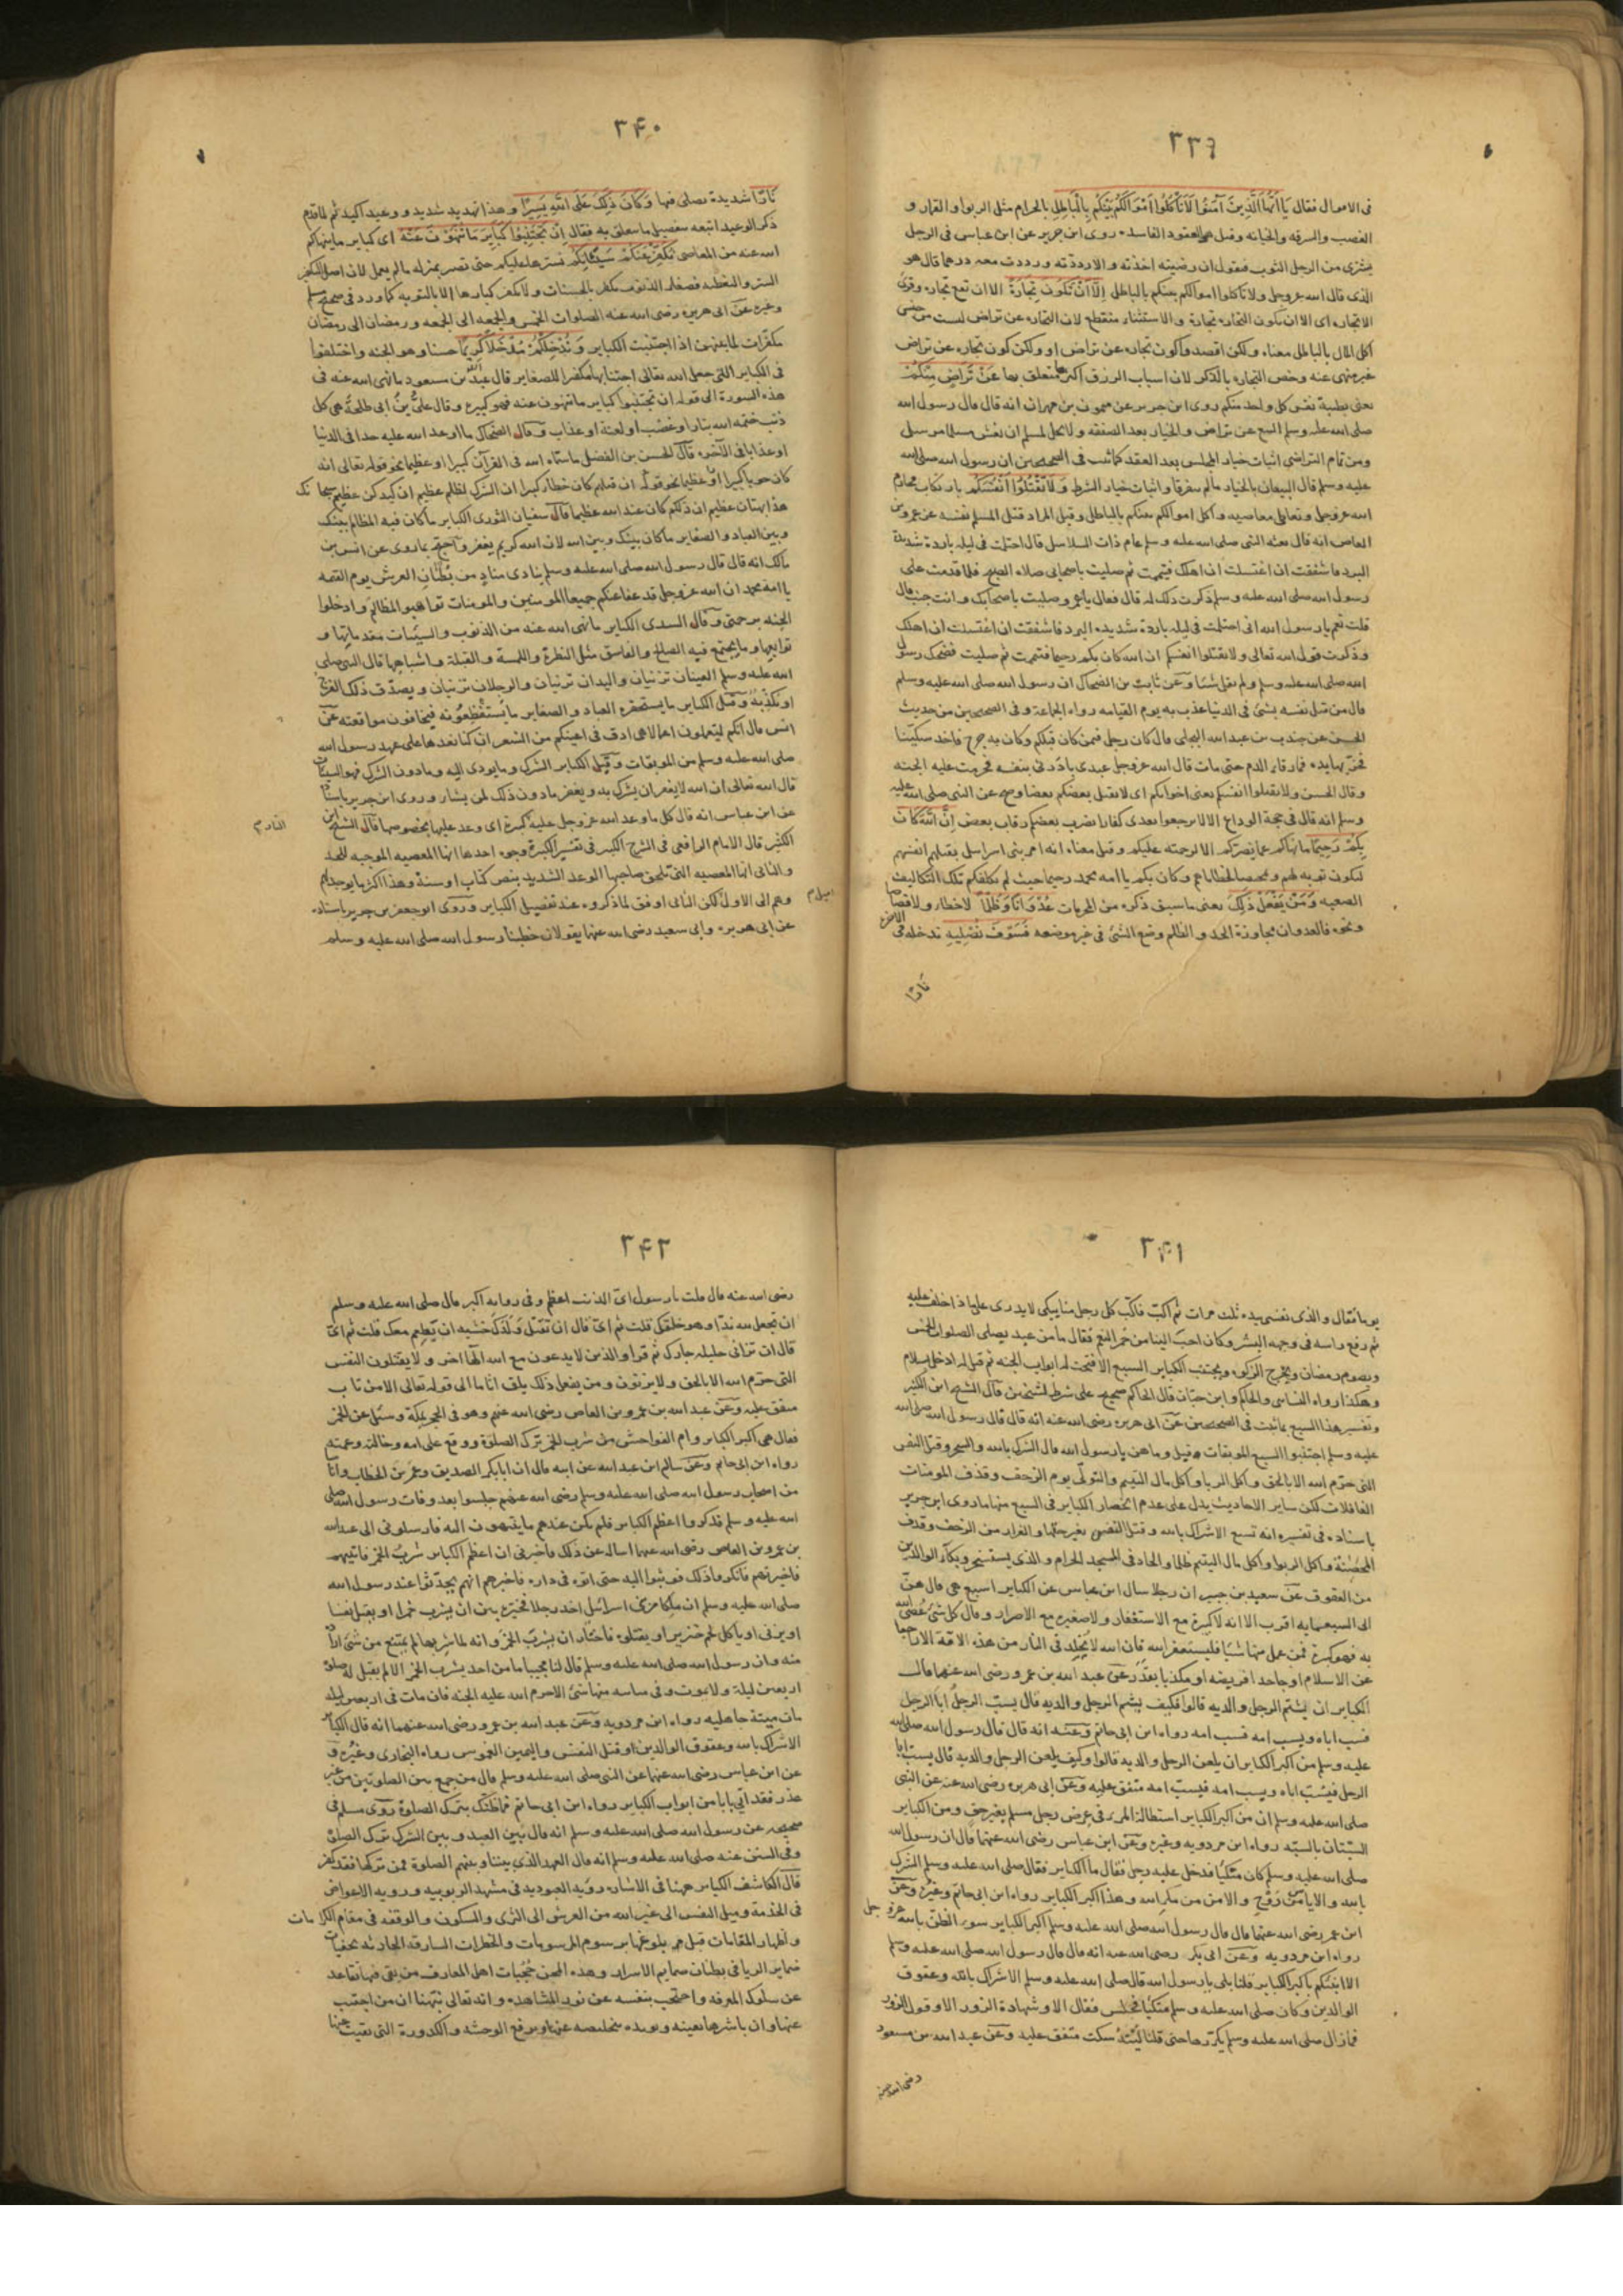 ٣٣٩
فى الاموال فقال يَا اَيُّهَا الَّذِينَ آمَنُوا لَا تَأْكُلُوا اَمْوَالَكُمْ بَيْنَكُمْ بِالْبَاطِلِ بالحرام مثل الربوا و القمار و
الغصب والسرقه والخيانه وقيل هو العقود الفاسده روى ابن جرير عن ابن عباس فى الرجل
يشترى من الرجل الثوب فيقول ان رضيته اخذته والا رددته ورددت معه درهما قال هو
الذى قال الله عز وجل ولا تاكلوا اموالكم بينكم بالباطل اِلَّا اَنْ تَكُونَ تِجَارَةً الا ان تقع تجاره وقرئ
الا تجاره اى الا ان تكون التجاره تجارة والاستثناء منقطع لان التجاره عن تراض ليست من جنس
اكل المال بالباطل معناه ولكن اقصدوا كون تجاره عن تراض او ولكن كون تجاره عن تراض
غير منهى عنه وخص التجاره بالذكر لان اسباب الرزق اكثرها متعلق بها عَنْ تَرَاضٍ مِنْكُمْ
يعنى بطيبة نفس كل واحد منكم روى ابن جرير عن ميمون بن مهران انه قال قال رسول الله
صلى الله عليه وسلم البيع عن تراض والخيار بعد الصفقه ولا يحل لمسلم ان يغش مسلما مرسل
ومن تمام التراضى اثبات خيار المجلس بعد العقد كما ثبت فى الصحيحين ان رسول الله صلى الله
عليه وسلم قال البيعان بالخيار ما لم يتفرقا واثبات خيار الشرط وَلَا تَقْتُلُوا اَنْفُسَكُمْ بارتكاب محارم
الله عز وجل وتعاطى معاصيه واكل اموالكم بينكم بالباطل وقيل المراد قتل المسلم نفسه عن عمرو بن
العاص انه قال بعثه النبى صلى الله عليه وسلم عام ذات السلاسل قال احتلمت فى ليله باردة شديدة
البرد فاشفقت ان اغتسلت ان اهلك فتيممت ثم صليت باصحابى صلاة الصبح فلما قدمت على
رسول الله صلى الله عليه وسلم ذكرت ذلك له قال فقال يا عمرو صليت باصحابك وانت جنب قال
قلت نعم يا رسول الله انى احتلمت فى ليله باردة شديده البرد فاشفقت ان اغتسلت ان اهلك
وذكرت قول الله تعالى ولا تقتلوا انفسكم ان الله كان بكم رحيما فتيممت ثم صليت فضحك رسول
الله صلى الله عليه وسلم ولم يقل شيئا وعن ثابت بن الضحاك ان رسول الله صلى الله عليه وسلم
قال من قتل نفسه بشئ فى الدنيا عذب به يوم القيامه رواه الجماعة وفى الصحيحين من حديث
الحسن عن جندب بن عبد الله البجلى قال كان رجل فيمن كان قبلكم وكان به جرح فاخذ سكينا
فحز بها يده فما رقا الدم حتى مات قال الله عز وجل عبدى بادرنى بنفسه فحرمت عليه الجنه
وقال الحسن ولا تقتلوا انفسكم يعنى اخوانكم اى لا يقتل بعضكم بعضا وصح عن النبى صلى الله عليه
وسلم انه قال فى حجة الوداع الا لا ترجعوا بعدى كفارا يضرب بعضكم رقاب بعض اِنَّ اللّٰهَ كَانَ
بِكُمْ رَحِيمًا ما نهاكم عما يضركم الا لرحمته عليكم وقيل معناه انه امر بنى اسرايل بقتلهم انفسهم
ليكون توبه لهم وتمحيصا لخطاياهم وكان بكم يا امه محمد رحيما حيث لم يكلفكم تلك التكاليف
الصعبه وَمَنْ يَفْعَلْ ذَلِكَ يعنى ما سبق ذكره من المحرمات عُدْوَانًا وَظُلْمًا لا خطأ ولا قصاصا
ونحوه فالعدوان مجاوزة الحد والظلم وضع الشئ فى غير موضعه فَسَوْفَ نُصْلِيهِ ندخله فى الاخرة
نَارًا
٣٤٠
نَارًا شديدة يصلى فيها وَكَانَ ذَلِكَ عَلَى اللّٰهِ يَسِيرًا وهذا تهديد شديد ووعيد اكيد ثم لما قدم
ذكر الوعيد اتبعه بتفصيل ما يتعلق به فقال اِنْ تَجْتَنِبُوا كَبَائِرَ مَا تُنْهَوْنَ عَنْهُ اى كباير ما ينهاكم
الله عنه من المعاصى نُكَفِّرْ عَنْكُمْ سَيِّئَاتِكُمْ نسترها عليكم حتى تصير بمنزله ما لم يعمل لان اصل التكفير
الستر والتغطيه فصغار الذنوب تكفر بالحسنات ولا تكفر كبارها الا بالتوبه كما ورد فى صحيح مسلم
وغيره عن ابى هريره رضى الله عنه الصلوات الخمس والجمعه الى الجمعه ورمضان الى رمضان
مكفرات لما بينهن اذا اجتنبت الكباير وَنُدْخِلْكُمْ مُدْخَلًا كَرِيمًا حسنا وهو الجنه واختلفوا
فى الكباير التى جعل الله تعالى اجتنابها مكفرا للصغاير قال عبد الله بن مسعود ما نهى الله عنه فى
هذه السورة الى قوله ان تجتنبوا كباير ما تنهون عنه فهو كبيرة وقال على بن ابى طلحة هى كل
ذنب ختمه الله بنار او غضب او لعنة او عذاب وقال الضحاك ما اوعد الله عليه حدا فى الدنيا
او عذابا فى الآخره قال الحسن بن الفضل ما سماه الله فى القرآن كبيرا او عظيما نحو قوله تعالى انه
كان حوبا كبيرا او عظيما نحو قوله ان قتلهم كان خطأ كبيرا ان الشرك لظلم عظيم ان كيدكن عظيم سبحانك
هذا بهتان عظيم ان ذلكم كان عند الله عظيما قال سفيان الثورى الكباير ما كان فيه المظالم بينك
وبين العباد والصغاير ما كان بينك وبين الله لان الله كريم يغفر واحتج بما روى عن انس بن
مالك انه قال قال رسول الله صلى الله عليه وسلم ينادى مناد من بُطْنَانِ العرش يوم القيمه
يا امه محمد ان الله عز وجل قد عفا عنكم جميعا المومنين والمومنات تواهبوا المظالم وادخلوا
الجنه برحمتى وقال السدى الكباير ما نهى الله عنه من الذنوب والسيئات مقدماتها و
توابعها وما يجتمع فيه الصالح والفاسق مثل النظرة واللمسة والقبلة واشباهها قال النبى صلى
الله عليه وسلم العينان تزنيان واليدان تزنيان والرجلان تزنيان ويصدق ذلك الفرج
او يكذبه وقيل الكباير ما يستحقره العباد والصغاير ما يستفظعونه فيخافون مواقعته عن
انس قال انكم ليتعملون اعمالا هى ادق فى اعينكم من الشعر ان كنا نعدها على عهد رسول الله
صلى الله عليه وسلم من الموبقات وقيل الكباير الشرك وما يودى اليه وما دون الشرك فهو السيئات
قال الله تعالى ان الله لا يغفر ان يشرك به ويغفر ما دون ذلك لمن يشاء وروى ابن جرير باسناده
عن ابن عباس انه قال كل ما وعد الله عز وجل عليه كبيرة اى وعد عليها بخصوصها قال الشيخ ابن
الكثير قال الامام الرافعى فى الشرح الكبير فى تفسير الكبيرة وجوه احدها انها المعصيه الموجبه للحد
والثانى انها المعصيه التى تلحق صاحبها الوعيد الشديد بنص كتاب او سنة وهذا اكثر ما يوجد لهم
وهم الى الاول لكن الثانى اوفق لما ذكروه عند تفصيل الكباير وروى ابو جعفر بن جرير باسناده
عن ابى هريره وابى سعيد رضى الله عنهما يقولان خطبنا رسول الله صلى الله عليه وسلم
٣٤١
يوما فقال والذى نفسى بيده ثلث مرات ثم اكب فاكب كل رجل منا يبكى لا يدرى على ماذا حلف عليه
ثم رفع راسه فى وجهه البشر وكان احب الينا من حمر النعم فقال ما من عبد يصلى الصلوات الخمس
ويصوم رمضان ويخرج الزكوه ويجتنب الكباير السبع الا فتحت له ابواب الجنه ثم قيل له ادخل بسلام
وهكذا رواه النسائى والحاكم وابن حبان قال الحاكم صحيح على شرط الشيخين قال الشيخ ابن الكثير
وتفسير هذا السبع بما ثبت فى الصحيحين عن ابى هريره رضى الله عنه انه قال قال رسول الله صلى الله
عليه وسلم اجتنبوا السبع الموبقات قيل وما هن يا رسول الله قال الشرك بالله والسحر وقتل النفس
التى حرم الله الا بالحق واكل الربا واكل مال اليتيم والتولى يوم الزحف وقذف المومنات
الغافلات لكن ساير الاحاديث يدل على عدم انحصار الكباير فى السبع منها ما روى ابن جرير
باسناده فى تفسيره انه تسع الاشراك بالله وقتل النفس بغير حقها والفرار من الزحف وقذف
المحصنة واكل الربوا واكل مال اليتيم ظلما والحاد فى المسجد الحرام والذى يستسخر وبكاء الوالدين
من العقوق عن سعيد بن جبير ان رجلا سال ابن عباس عن الكباير اسبع هى قال هن
الى السبعمايه اقرب الا انه لا كبيرة مع الاستغفار ولا صغيره مع الاصرار وقال كل شئ عُصى الله
به فهو كبيرة فمن عمل منها شيا فليستغفر الله فان الله لا يخلد فى النار من هذه الامة الا راجعا
عن الاسلام او جاحدا فريضه او مكذبا بقدر عن عبد الله بن عمرو رضى الله عنهما قال
الكباير ان يشتم الرجل والديه قالوا فكيف يشتم الرجل والديه قال يسب الرجل ابا الرجل
فيسب اباه ويسب امه فيسب امه رواه ابن ابى حاتم وعنه انه قال قال رسول الله صلى الله
عليه وسلم من اكبر الكباير ان يلعن الرجل والديه قالوا وكيف يلعن الرجل والديه قال يسب ابا
الرجل فيسب اباه ويسب امه فيسب امه متفق عليه وعن ابى هريره رضى الله عنه عن النبى
صلى الله عليه وسلم ان من اكبر الكباير استطالة المرء فى عرض رجل مسلم بغير حق ومن الكباير
السبتان بالسبه رواه ابن مردويه وغيره وعن ابن عباس رضى الله عنهما قال ان رسول الله
صلى الله عليه وسلم كان متكيا فدخل عليه رجل فقال ما الكباير فقال صلى الله عليه وسلم الشرك
بالله والاياس من روح والامن من مكر الله وهذا اكبر الكباير رواه ابن ابى حاتم وغيره وعن
ابن عمر رضى الله عنهما قال قال رسول الله صلى الله عليه وسلم اكبر الكباير سوء الظن بالله عز وجل
رواه ابن مردويه وعن ابى بكر رضى الله عنه انه قال قال رسول الله صلى الله عليه وسلم
الا انبئكم باكبر الكباير قلنا بلى يا رسول الله قال صلى الله عليه وسلم الاشراك بالله وعقوق
الوالدين وكان صلى الله عليه وسلم متكيا فجلس فقال الا وشهادة الزور الا وقول الزور
فما زال صلى الله عليه وسلم يكررها حتى قلنا ليته سكت متفق عليه وعن عبد الله بن مسعود
رضى الله عنه
٣٤٢
رضى الله عنه قال قلت يا رسول اى الذنب اعظم وفى روايه اكبر قال صلى الله عليه وسلم
ان تجعل لله ندا وهو خلقك قلت ثم اى قال ان تقتل ولدك خشيه ان يطعم معك قلت ثم اى
قال ان تزانى حليله جارك ثم قرا والذين لا يدعون مع الله الها اخر ولا يقتلون النفس
التى حرم الله الا بالحق ولا يزنون ومن يفعل ذلك يلق اثاما الى قوله تعالى الا من تاب
متفق عليه وعن عبد الله بن عمرو بن العاص رضى الله عنهم وهو فى الحجر بمكة وسئل عن الخمر
فقال هى اكبر الكباير وام الفواحش من شرب الخمر ترك الصلوة ووقع على امه وخالته وعمته
رواه ابن ابى حاتم وعن سالم ابن عبد الله عن ابيه قال ان ابا بكر الصديق وعمر بن الخطاب واناسا
من اصحاب رسول الله صلى الله عليه وسلم رضى الله عنهم جلسوا بعد وفات رسول الله صلى
الله عليه وسلم فذكروا اعظم الكباير فلم يكن عندهم ما ينتهون اليه فارسلونى الى عبد الله
بن عمرو بن العاص رضى الله عنهما اساله عن ذلك فاخبرنى ان اعظم الكباير شرب الخمر فاتيتهم
فاخبرتهم فانكروا ذلك فوثبوا اليه حتى اتوه فى داره فاخبرهم انهم تحدثوا عند رسول الله
صلى الله عليه وسلم ان ملكا من بنى اسرائيل اخذ رجلا فخيره بين ان يشرب خمرا او يقتل نفسا
او يزنى او ياكل لحم خنزير او يقتلوه فاختار ان يشرب الخمر وانه لما شربها لم يمتنع من شئ اراده
منه وان رسول الله صلى الله عليه وسلم قال لنا مجيبا ما من احد يشرب الخمر الا لم يقبل له صلوة
اربعين ليلة ولا يموت وفى مثانته منها شئ الا حرم الله عليه الجنه فان مات فى اربعين ليله
مات ميتة جاهليه رواه ابن مردويه وعن عبد الله بن عمرو رضى الله عنهما انه قال الكباير
الاشراك بالله وعقوق الوالدين او قتل النفس واليمين الغموس رواه البخارى وغيره و
عن ابن عباس رضى الله عنهما عن النبى صلى الله عليه وسلم قال من جمع بين الصلوتين من غير
عذر فقد اتى بابا من ابواب الكباير رواه ابن ابى حاتم فما ظنك بترك الصلوة روى مسلم فى
صحيحه عن رسول الله صلى الله عليه وسلم انه قال بين العبد وبين الشرك ترك الصلوة
وفى السنن عنه صلى الله عليه وسلم انه قال العهد الذى بيننا وبينهم الصلوة فمن تركها فقد كفر
قال الكاشف الكباير ههنا فى الاشاره رؤيه العبوديه فى مشهد الربوبيه ورويه الاعواض
فى الخدمة وميل النفس الى غير الله من العرش الى الثرى والسكون والوقفه فى مقام الكرامات
واظهار المقامات قبل بلوغها برسوم المرسومات والخطرات السارقه الحادثه بخفيات
ضماير الريا فى بطنان صمايم الاسرار وهذه المحن حجبات اهل المعارف من بقى فيها تقاعد
عن سلوك المعرفه واحتجب بنفسه عن نور المشاهده وانه تعالى نبهنا ان من اجتنب
عنها وان باشرها بعينه ويويده بتخليصه عنها ويرفع الوحشه والكدورة التى بقيت عنها